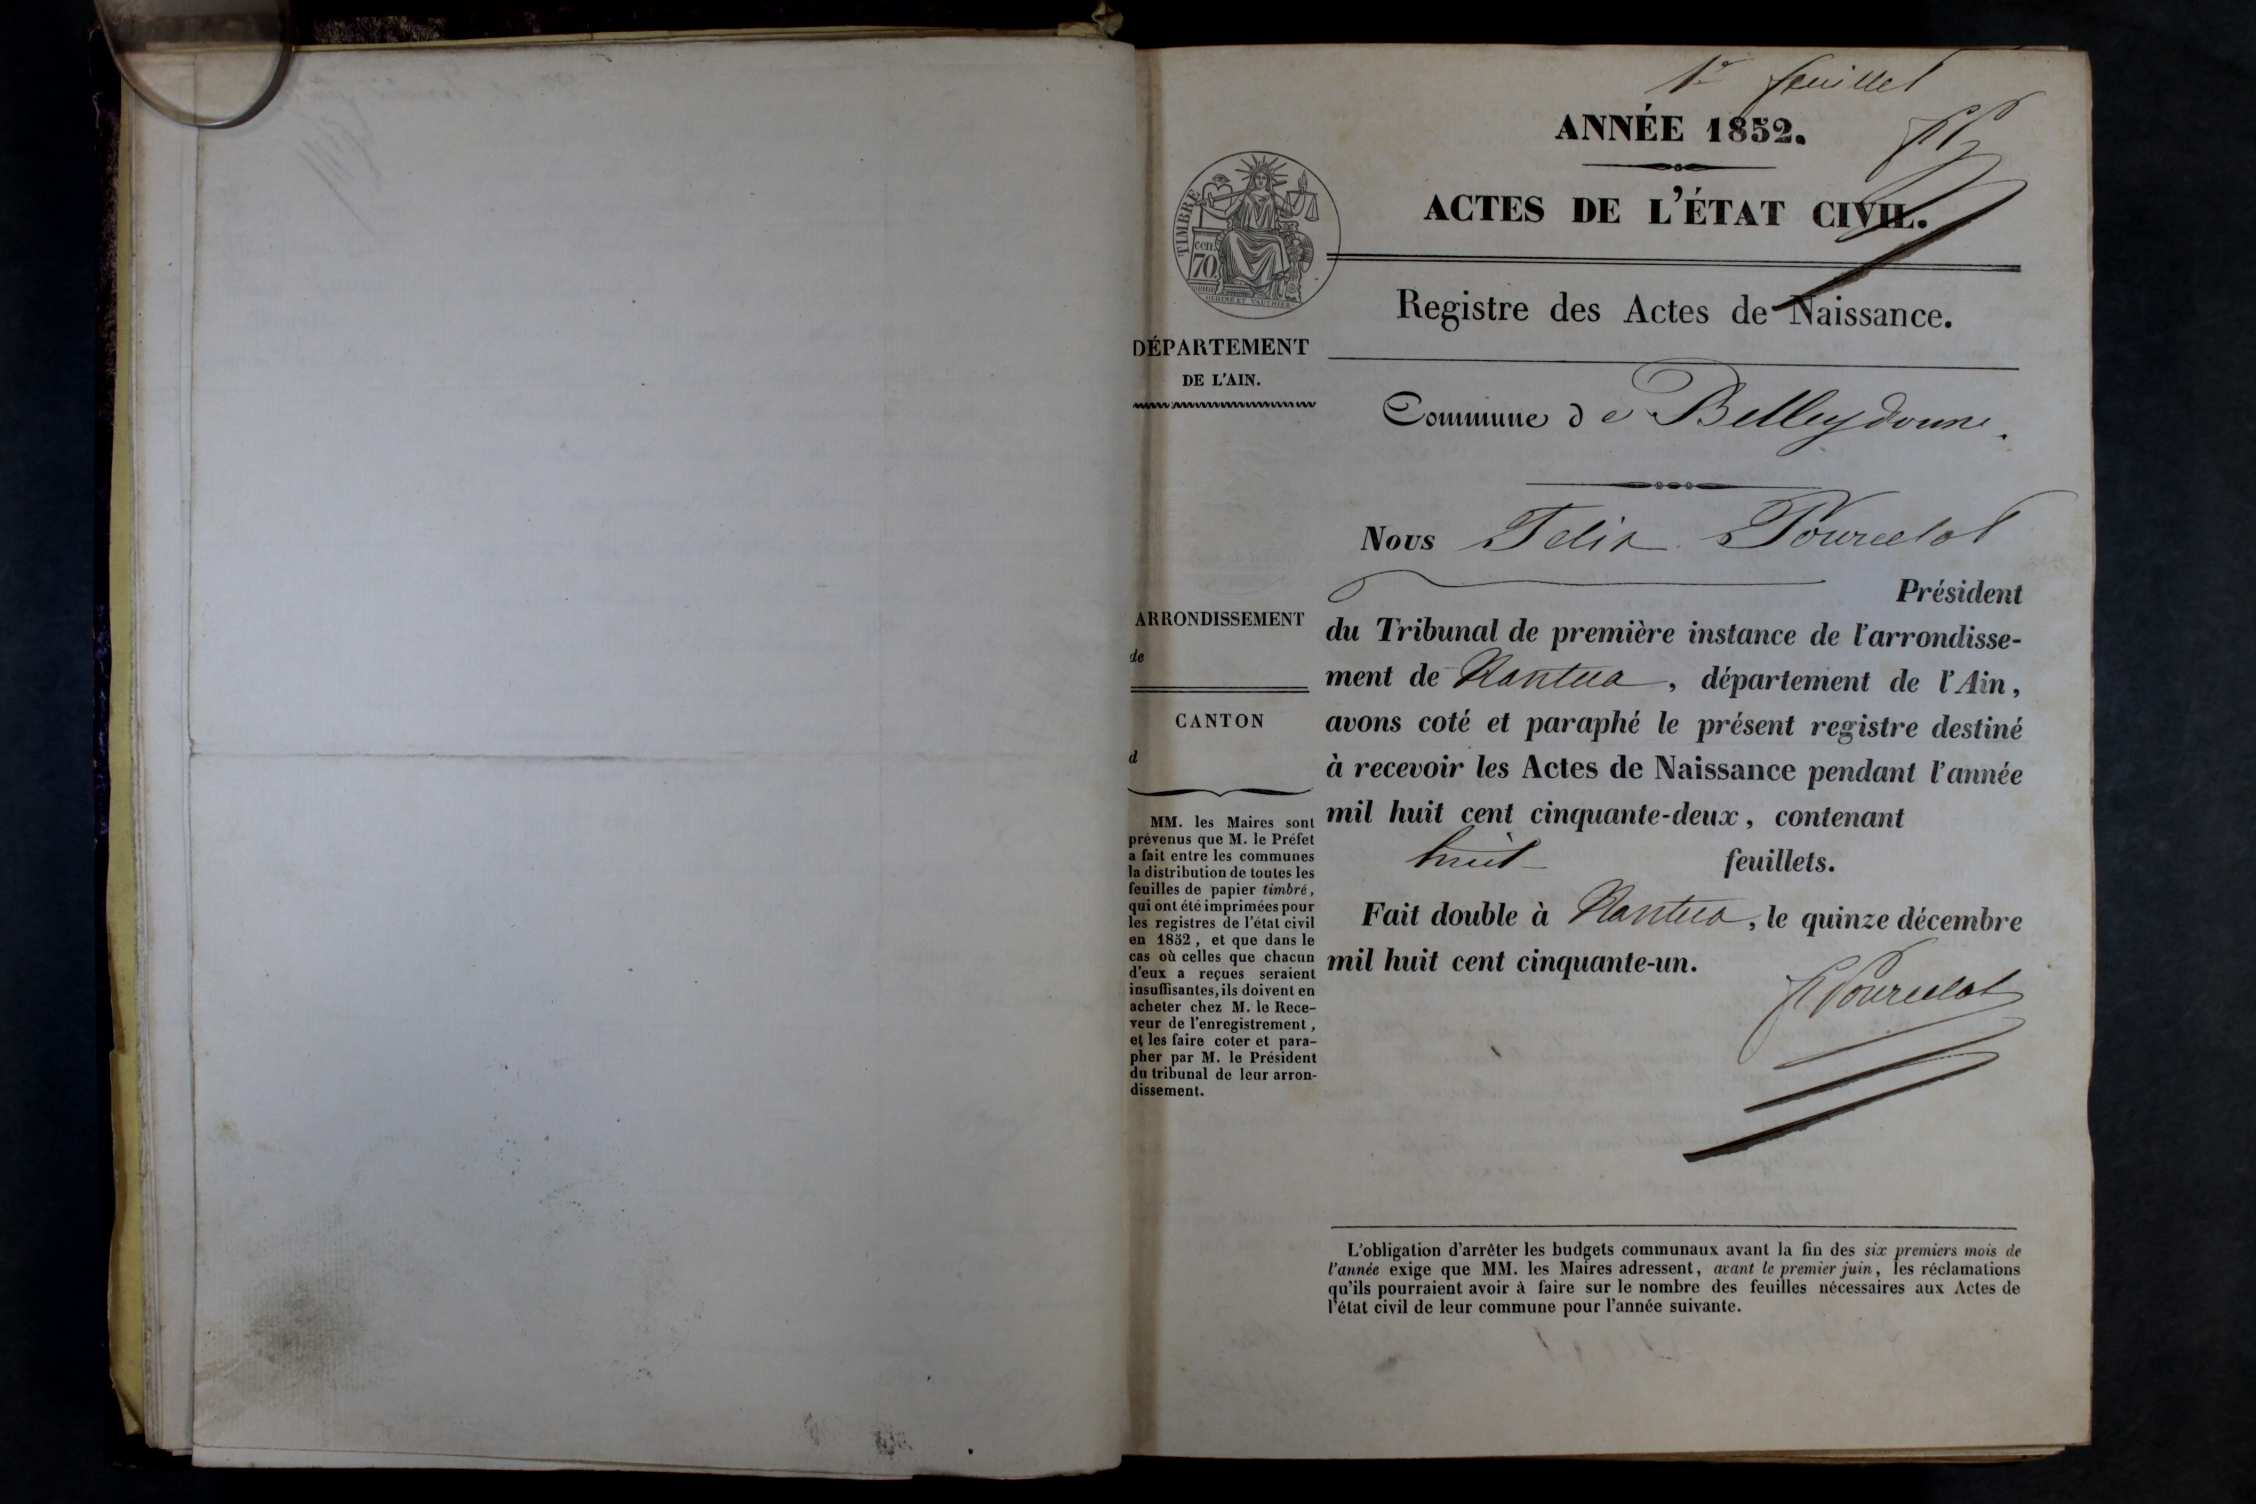 1er feuillet
ANNÉE 1852.
ACTES DE L'ÉTAT CIVIL.
TIMBRE
cen.
70
Registre des Actes de Naissance.
DÉPARTEMENT
DE L'AIN.
Commune de Belleydoux.
Nous Felix Pourcelot
Président
du Tribunal de première instance de l'arrondisse-
ment de Nantua, département de l'Ain,
avons coté et paraphé le présent registre destiné
à recevoir les Actes de Naissance pendant l'année
mil huit cent cinquante-deux, contenant
huit feuillets.
Fait double à Nantua, le quinze décembre
mil huit cent cinquante-un.
F Pourcelot
ARRONDISSEMENT
de
CANTON
d
MM. les Maires sont
prévenus que M. le Préfet
a fait entre les communes
la distribution de toutes les
feuilles de papier timbré,
qui ont été imprimées pour
les registres de l'état civil
en 1852, et que dans le
cas où celles que chacun
d'eux a reçues seraient
insuffisantes, ils doivent en
acheter chez M. le Rece-
veur de l'enregistrement,
et les faire coter et para-
pher par M. le Président
du tribunal de leur arron-
dissement.
L'obligation d'arrêter les budgets communaux avant la fin des six premiers mois de
l'année exige que MM. les Maires adressent, avant le premier juin, les réclamations
qu'ils pourraient avoir à faire sur le nombre des feuilles nécessaires aux Actes de
l'état civil de leur commune pour l'année suivante.